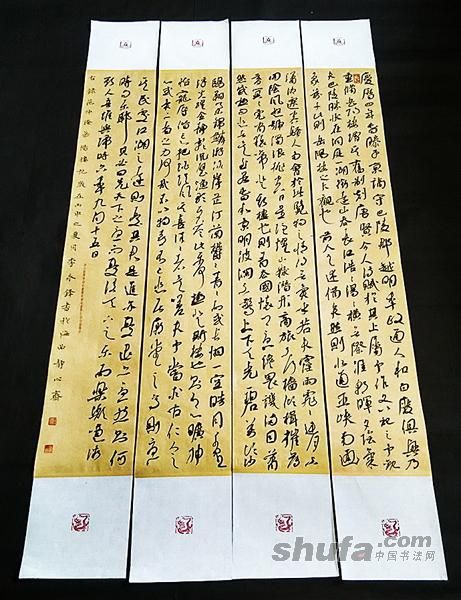 慶曆四年春滕子京謫守巴陵郡越明年政通人和百廢具興乃
重修岳陽樓增其舊制刻唐賢今人詩賦於其上屬予作文以記之予觀
夫巴陵勝狀在洞庭一湖銜遠山吞長江浩浩湯湯橫無際涯朝暉夕陰氣象
萬千此則岳陽樓之大觀也前人之述備矣然則北通巫峽南極
瀟湘遷客騷人多會於此覽物之情得無異乎若夫霪雨霏霏連月不
開陰風怒號濁浪排空日星隱曜山嶽潛形商旅不行檣傾楫摧薄
暮冥冥虎嘯猿啼登斯樓也則有去國懷鄉憂讒畏譏滿目蕭
然感極而悲者矣至若春和景明波瀾不驚上下天光一碧萬頃沙
鷗翔集錦鱗游泳岸芷汀蘭郁郁青青而或長煙一空皓月千里
浮光躍金靜影沉璧漁歌互答此樂何極登斯樓也則有心曠神
怡寵辱偕忘把酒臨風其喜洋洋者矣嗟夫予嘗求古仁人之心
或異二者之為何哉不以物喜不以己悲居廟堂之高則憂
其民處江湖之遠則憂其君是進亦憂退亦憂然則何
時而樂耶其必曰先天下之憂而憂後天下之樂而樂歟噫微
斯人吾誰與歸時六年九月十五日
右錄范仲淹岳陽樓記歲在丙申之夏月李永鋒書於海西靜心齋
shufa.com
中国书法网